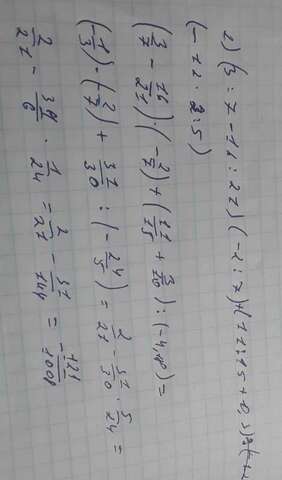 e) (3 : 7 - 16 : 21) (-2 : 7) + (11 : 15 + 0,3) :
(-12 · 2 : 5)
(3/7 - 16/21) · (-2/7) + (11/15 + 3/10) : (-4,8) =
(-1/3) · (-2/7) + 31/30 : (-24/5) = 2/21 - 31/30 · 5/24 =
2/21 - 31/6 · 1/24 = 2/21 - 31/144 = -121/1008